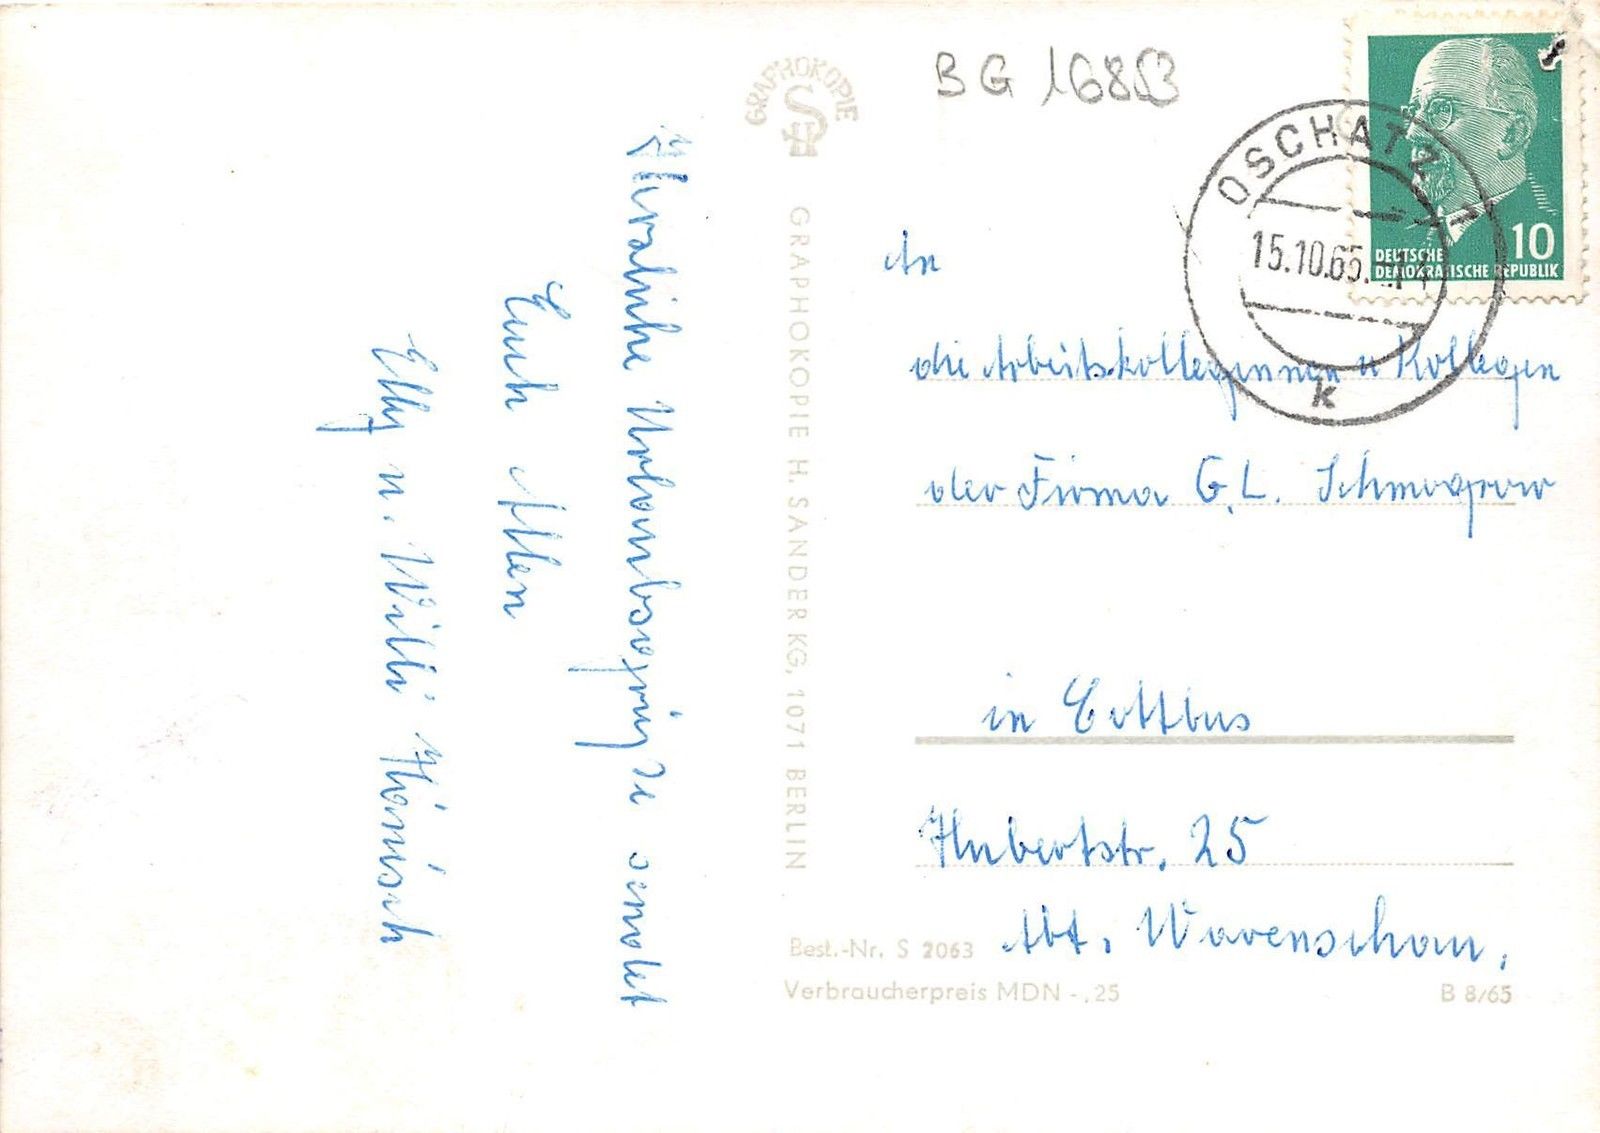 Herzliche Urlaubsgrüße sendet
Euch Allen
Elly u. Willi Hänisch
GRAPHOKOPIE
HS
GRAPHOKOPIE H. SANDER KG, 1071 BERLIN
BG 168
OSCHATZ 1
15.10.65.
k
10
DEUTSCHE
DEMOKRATISCHE REPUBLIK
An
die Arbeitskolleginnen u Kollegen
der Firma G. L. Schmogrow
in Cottbus
Hubertstr. 25
Abt. Warenschau.
Best.-Nr. S 2063
Verbraucherpreis MDN -,25
B 8/65